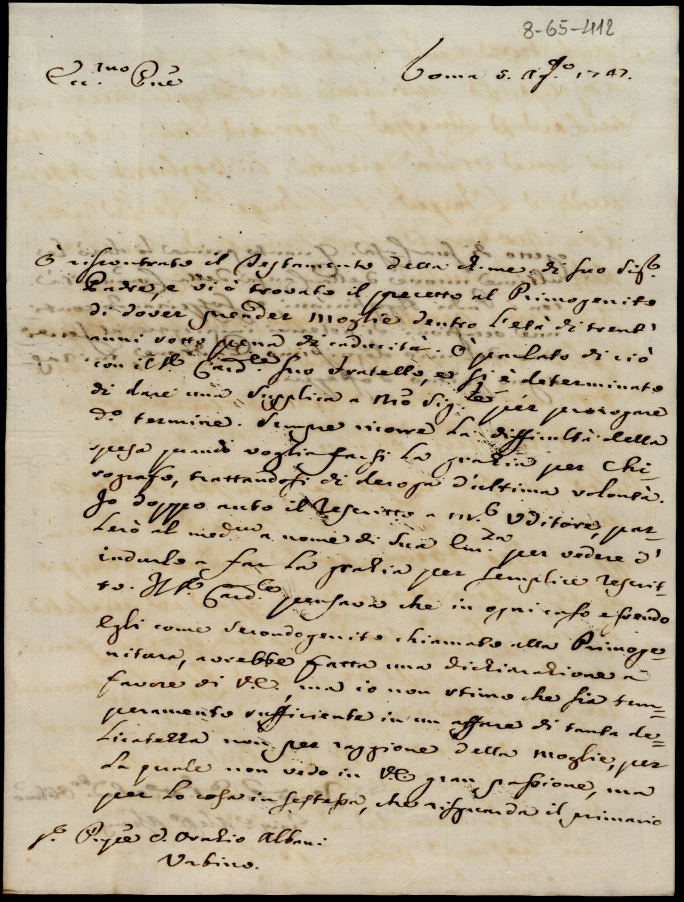 8-65-412
Ecc.mo Pne
Roma 5. Ag.to 1747.
O riscontrato il Testamento della ch. me. di suo Sig.r
Padre, e vi ò trovato il precetto al Primogenito
di dover prender Moglie dentro l'età di trent'
anni sotto pena di caducità. O parlato di ciò
con il S.r Card.le suo fratello, e si è determinato
di dare una supplica a Nr̃o Sig.re per prorogare
d.o termine. Sempre ricorre la difficultà della
spesa quando voglia farsi la grazia per Chi-
rografo, trattandosi di deroga d'ultima volontà.
Io doppo auto il Rescritto a M.r Uditore, par-
lerò al med.mo a nome di Sua Em.za per vedere d'
indurlo a far la grazia per semplice rescrit-
to. Il S.r Card.le pensava che in ogni caso essendo
Egli come secondogenito chiamato alla Primoge-
nitura, avrebbe fatta una dichiarazione à
favore di V.E., ma io non stimo che sia tem-
peramento sufficiente in un affare di tanta de-
licatezza non per raggione della Moglie, per
la quale non vedo in V.E. gran passione, ma
per la cosa in se stessa, che risguarda il primario
S.r Pnpe D. Orazio Albani
Urbino.